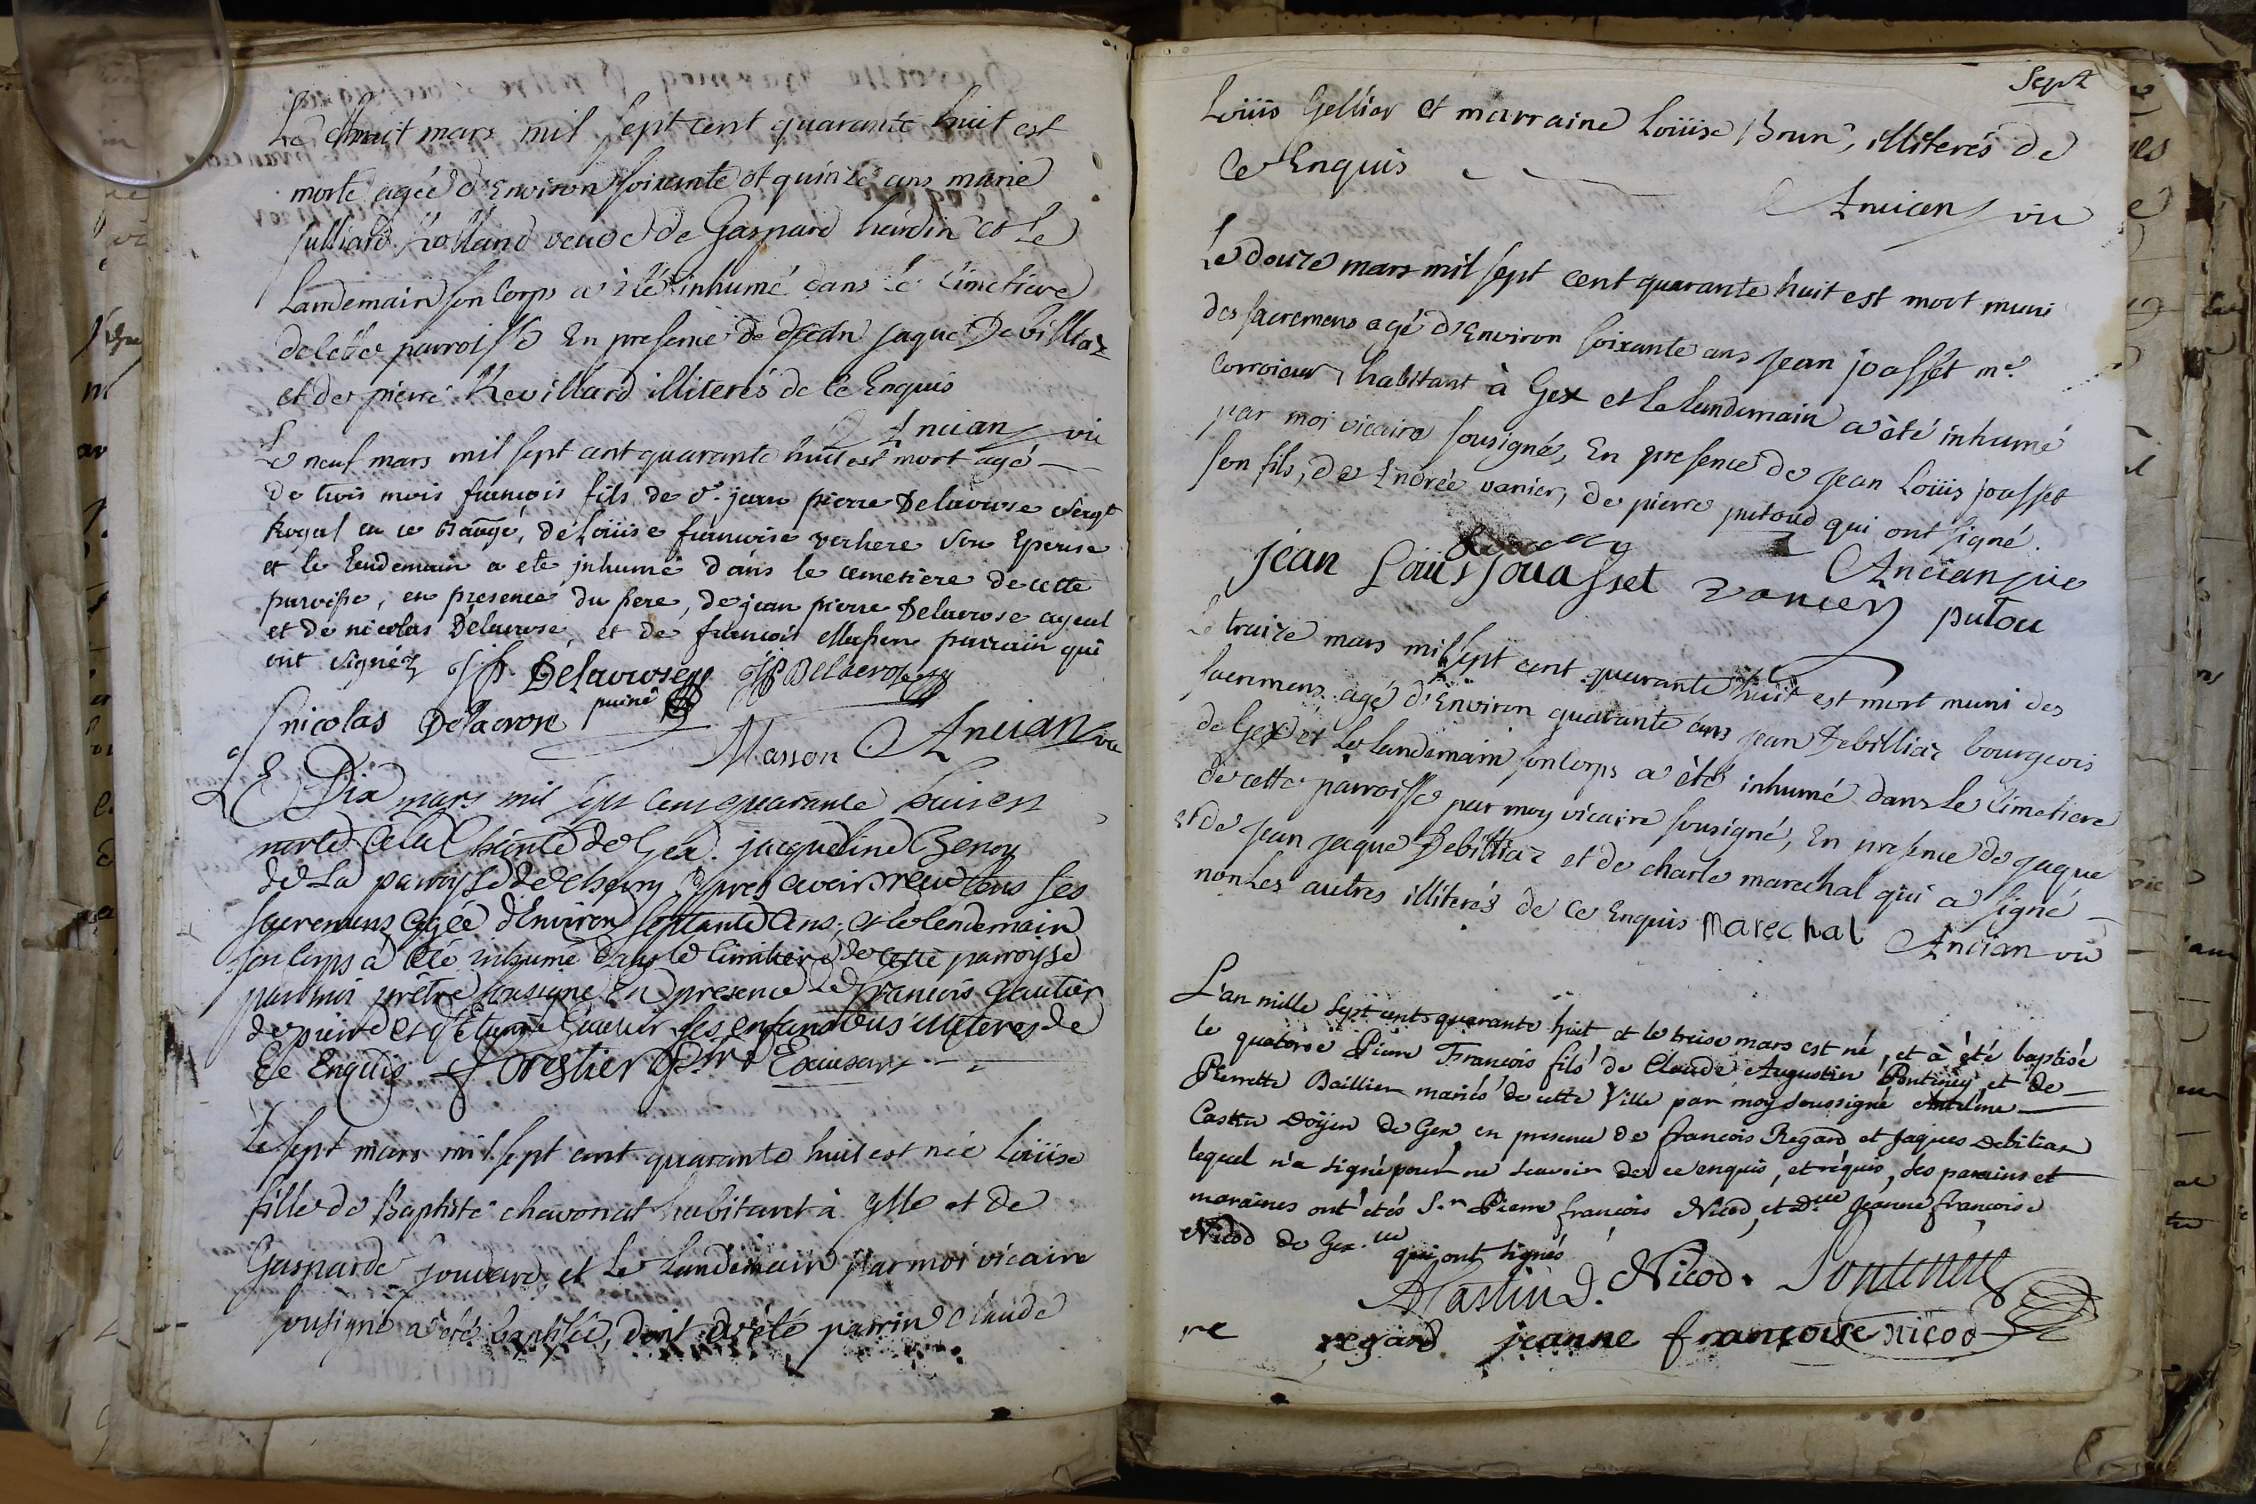 Le huit mars mil sept cent quarante huit est
morte agée d'Environ soixante et quinze ans marie
Julliard Rolland veuve de Gaspard hardin et le
Landemain son Corps a été inhumé dans le Cimetiere
de cette parroisse En presence de Jean jaque Debilliaz
et de pierre Revillard illiterés de ce Enquis
Ancian vic
Le neuf mars mil sept cent quarante huit est mort agé
de trois mois francois fils de Sr. jean pierre Delacrose Sergt
Royal en ce , de Loüise francoise verhere son Epouse
et le lendemain a ete jnhumé dans le cemetiere de cette
paroisse, en presence du pere, de jean pierre Delacrose ayeul
et de nicolas Delacrose, et de francois parrain qui
ont signéz JP. Delacrose JP Delacrose
puiné
nicolas Delacrose
Masson Ancian vic
LE Dix mars mil sept cent quarante huit est
morte a la Charité de Gex. jacqueline Benoy
de La parroysse de chevry apres avoir reçu tous ses
sacremens agée d'Environ septante ans, et le lendemain
son corps a été inhumé dans le cimitiere de cette parroysse
par moi prêtre sousigné En presence de francois gautier
de pierre et d'Etienne Gautier ses enfans tous illiterés de
Ce Enquis Forestier Ptre
Le sept mars mil sept cent quarante huit est née Loüise
fille de Baptiste chavonat habitant à Gex et de
Gasparde Jouvard, et le Landemain par moi vicaire
sousigné a été baptisée, dont a été parrin claude
Sept
Loüis Gellier et marraine Loüise Brun, illiterés de
Ce Enquis
Ancian vic
Le douze mars mil sept cent quarante huit est mort muni
des sacremens agé d'Environ soixante ans jean joasset me.
Corroieur, habitant à Gex et le landemain a été inhumé
par moi vicaire sousigné, En presence de jean Loüis joasset
son fils, de Andrée vanier, de pierre putoud qui ont signé.
jean Loüis Jouasset vancier putou
Ancian vic
Le traize mars mil sept cent quarante huit est mort muni des
sacremens, agé d'Environ quarante ans jean Debilliaz bourgeois
de Gex et Le landemain son Corps a été inhumé dans Le Cimetiere
de cette parroisse par moy vicaire sousigné, En presence de jaque
et de jean jaque Debilliaz et de charle marechal qui a signé
non Les autres illiterés de ce Enquis Marechal Ancian vic
L'an mille sept cents quarante huit et le treise mars est né, et à été baptisé
le quatorse Pierre Francois fils de Claude Augustin Pontenéy et de
Pierrette Baillier mariés de cette Ville par moy soussigné Antelme
Castin Doÿen de Gex en presence de francois Regard et Jaques Debilian
lequel n'a signé pour ne scavoir de ce enquis, et réquis, les parains et
maraines ont étés Sr. Pierre francois Nicod, et Dlle Jeanne françoise
Nicod de Gex. qui ont signés
ACastin D. Nicod. Pontenéÿ
re regard jeanne françoise nicod